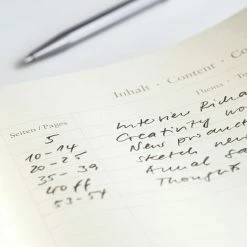 Inhalt · Content · Co
Seiten / Pages
5 Interview Richa
10 - 14 Creativity wo
20 - 25 New product
35 - 39 Sketch new
40 ff Annual sa
53 - 54 Thoughts